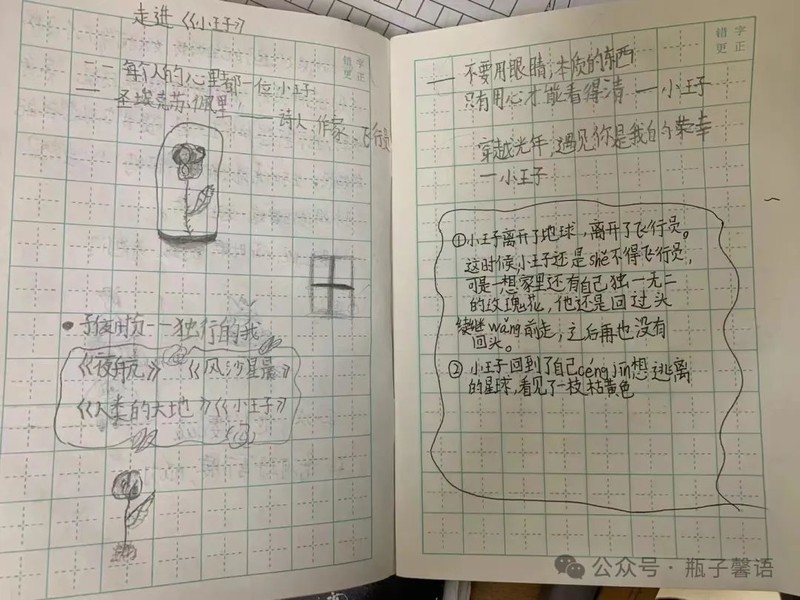 走进《小王子》
错字
更正
—— 每个人的心里都一位小王子
—— 圣埃克苏佩里
—— 诗人 作家 飞行员
独行的我
《夜航》 《风沙星晨》
《人类的大地》《小王子》
错字
更正
—— 不要用眼睛,本质的东西
只有用心才能看得清 —小王子
穿越光年,遇见你是我的荣幸
—小王子
①小王子离开了地球,离开了飞行员。
这时候,小王子还是shě不得飞行员,
可是一想家里还有自己独一无二
的玫瑰花,他还是回过头
续继wǎng前走,之后再也没有
回头。
②小王子回到了自己céng jīn想逃离
的星球,看见了一枝枯黄色
公众号·瓶子馨语